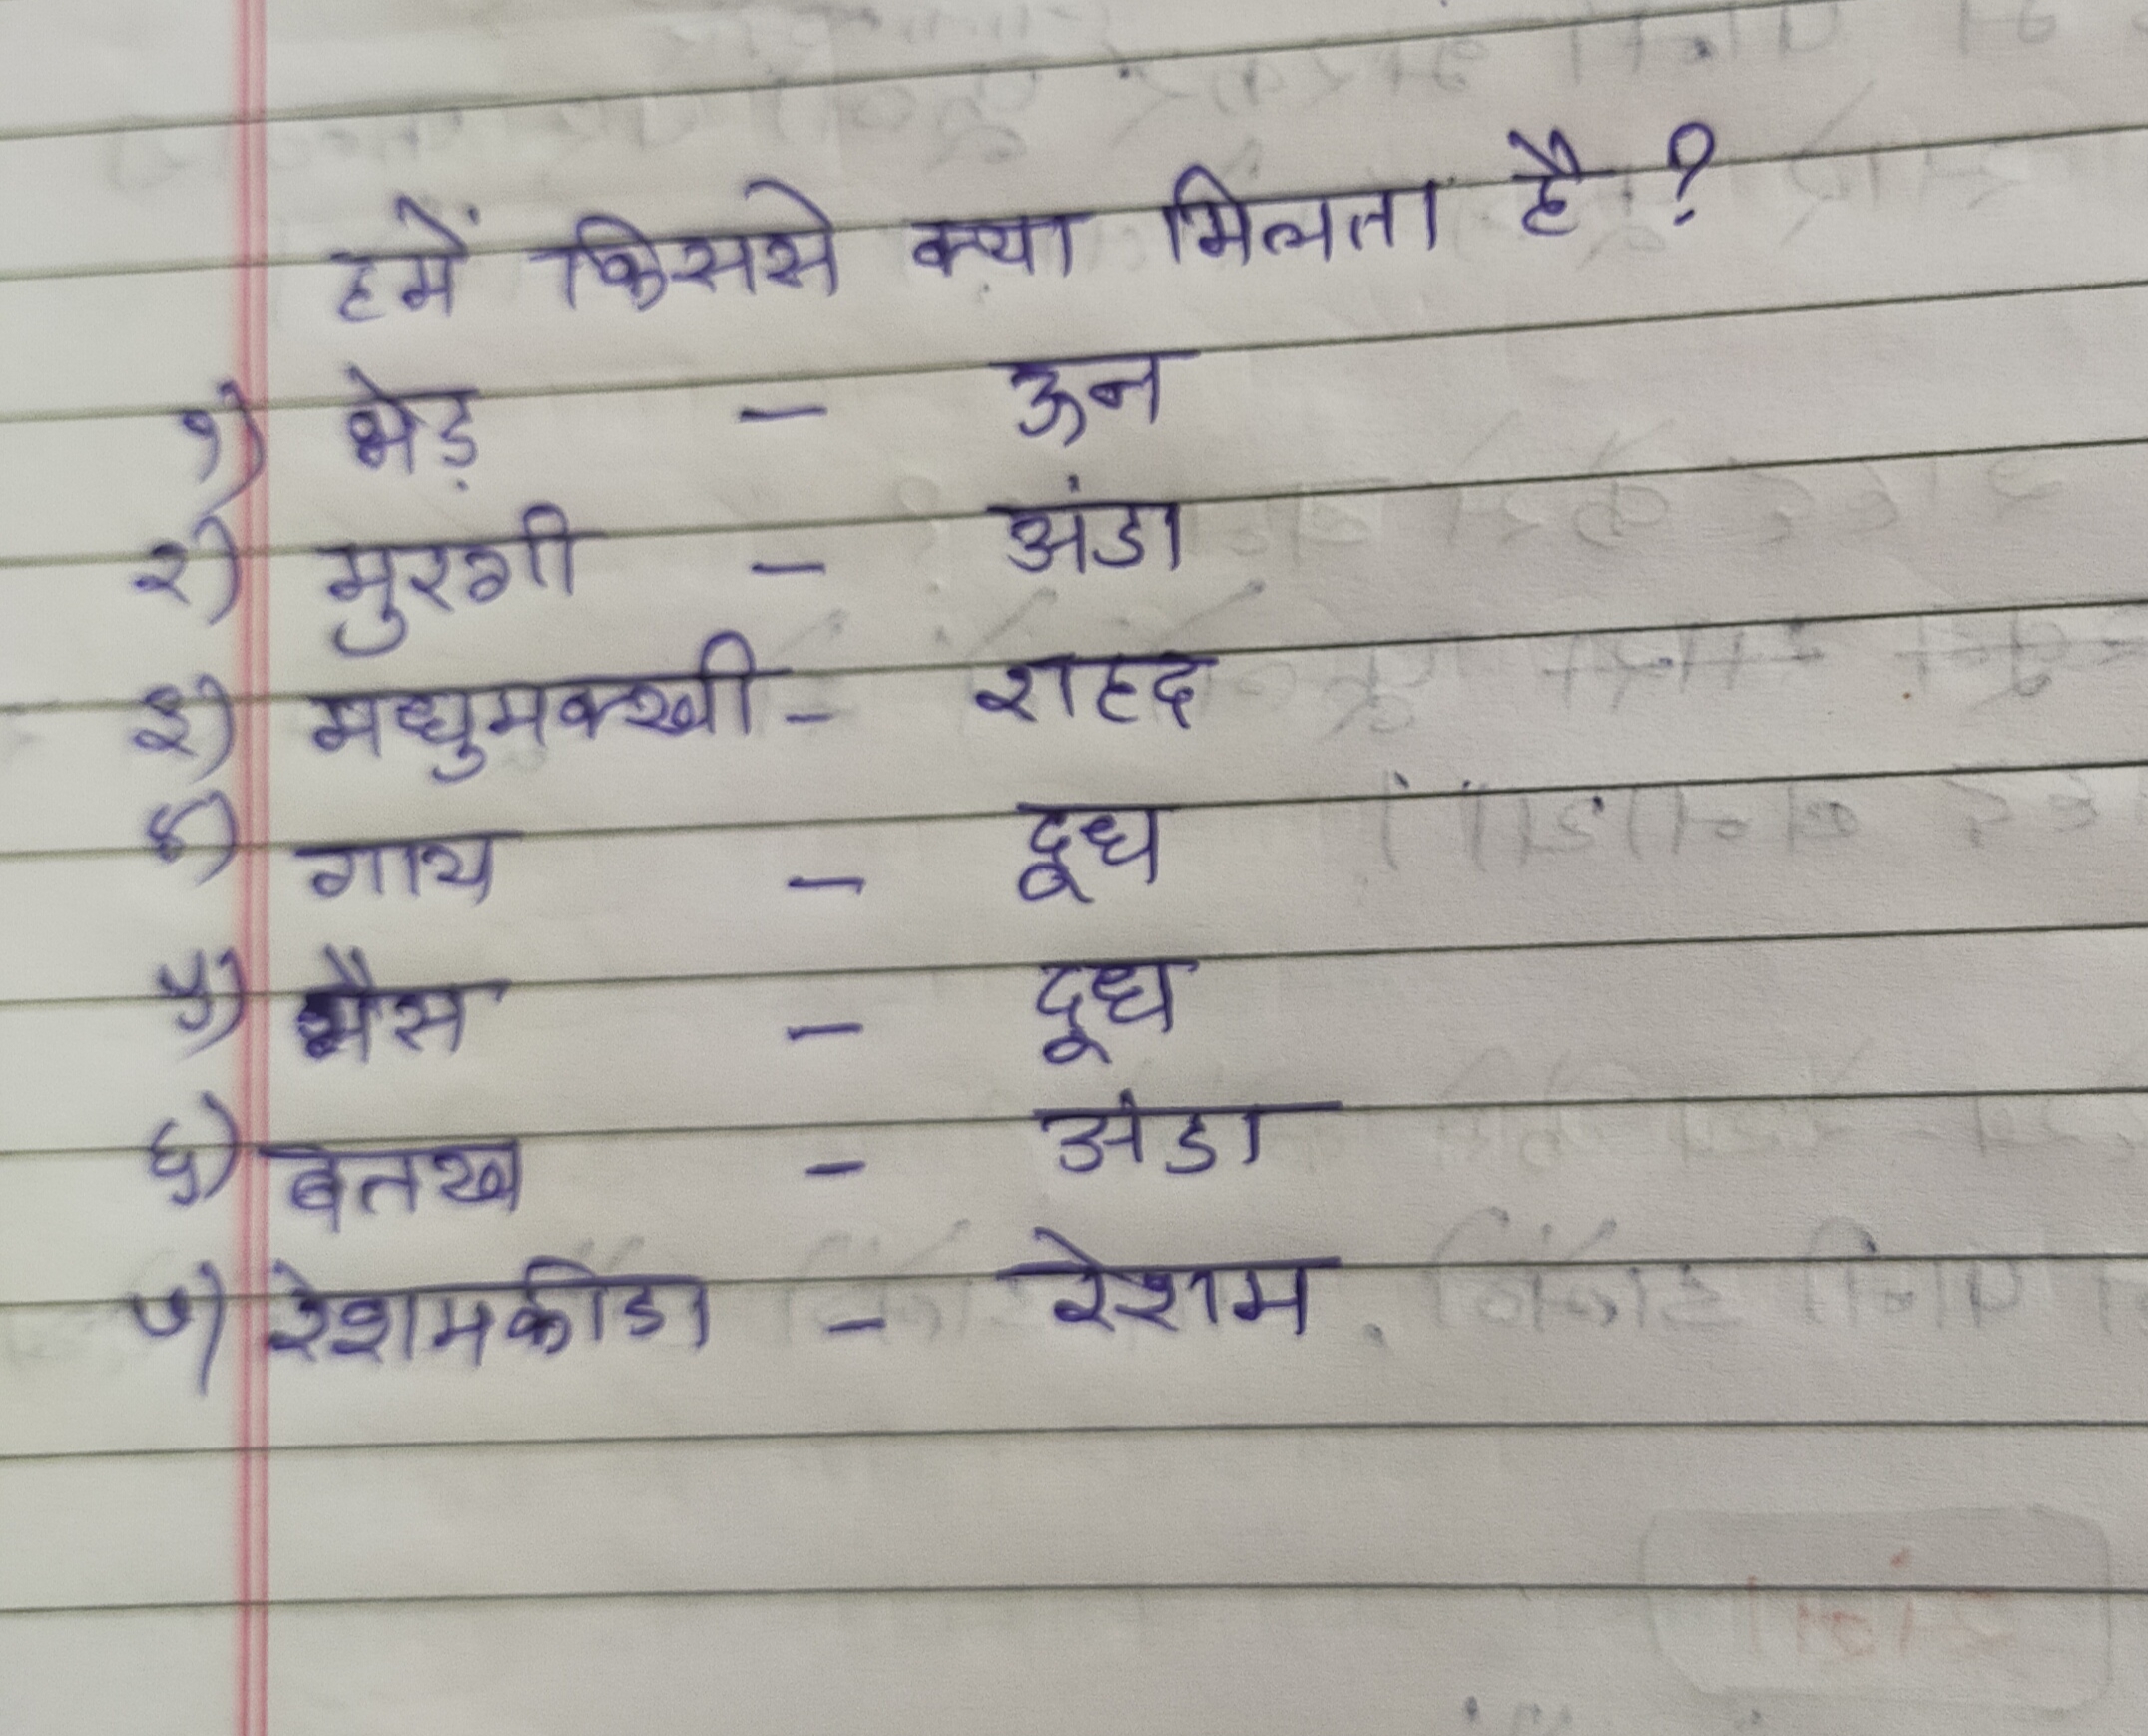 हमें किससे क्या मिलता है ?
१) भेड़ - ऊन
२) मुरगी - अंडा
३) मधुमक्खी - शहद
४) गाय - दूध
५) भैस - दूध
६) बतख - अंडा
७) रेशमकीडा - रेशम.